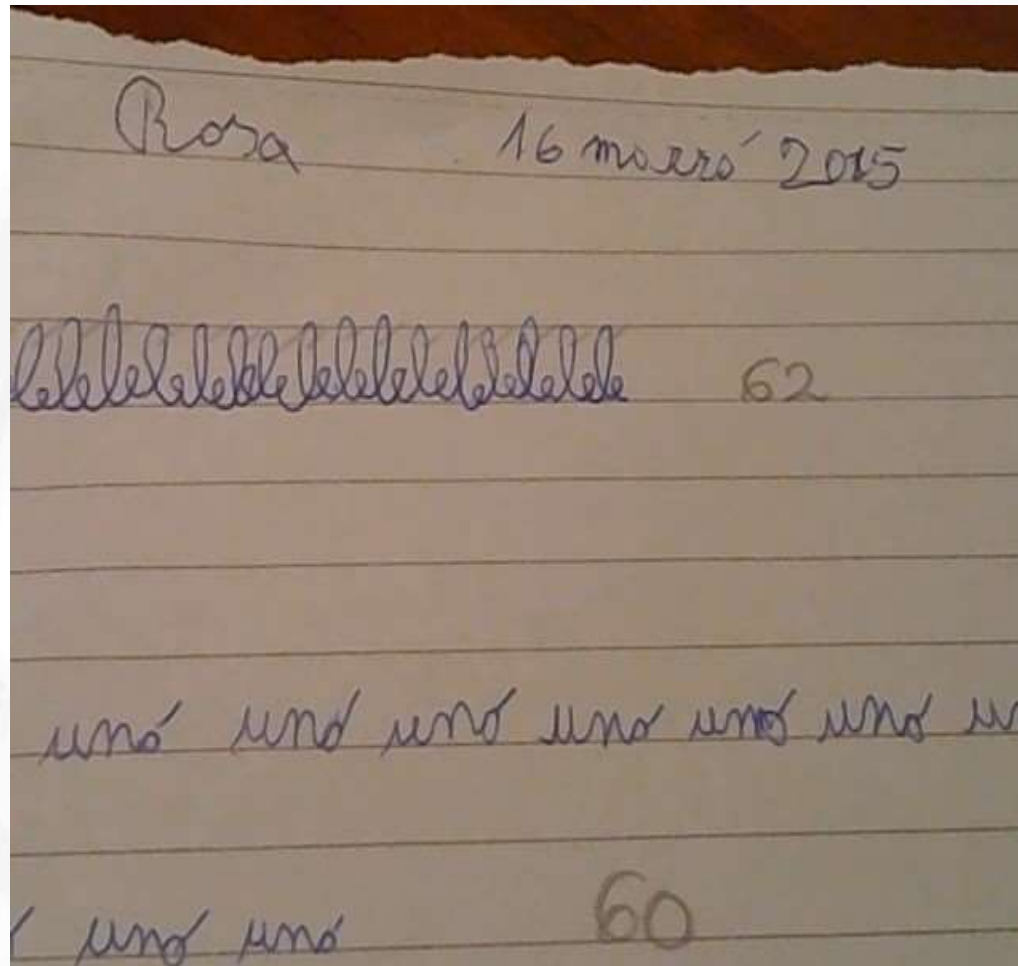 Rosa 16 marzo 2015
lelelelelelelelelelelelelelelele 62
uno uno uno uno uno uno u
uno uno 60